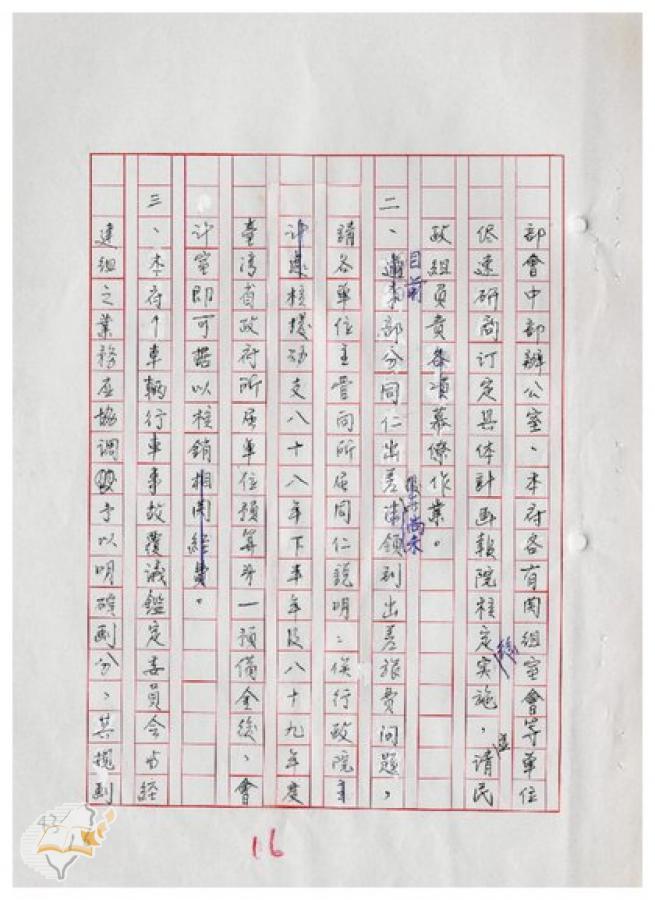 部會中部辦公室、本府各有関組室會等單位
侭速研商訂定具体計画報院核定後实施,並請民
政組負責各項幕僚作業。
二、目前部分同仁出差尚未領到出差旅費问題,
請各單位主管向所屬同仁說明:俟行政院主
計處核撥動支八十八年下半年及八十九年度
臺湾省政府所屬單位預算第一預備金後,會
計室即可据以核銷相関經費。
三、本府車輛行車事故覆議鑑定委員会由經
建組之業務应協調予以明確劃分,其規劃
16